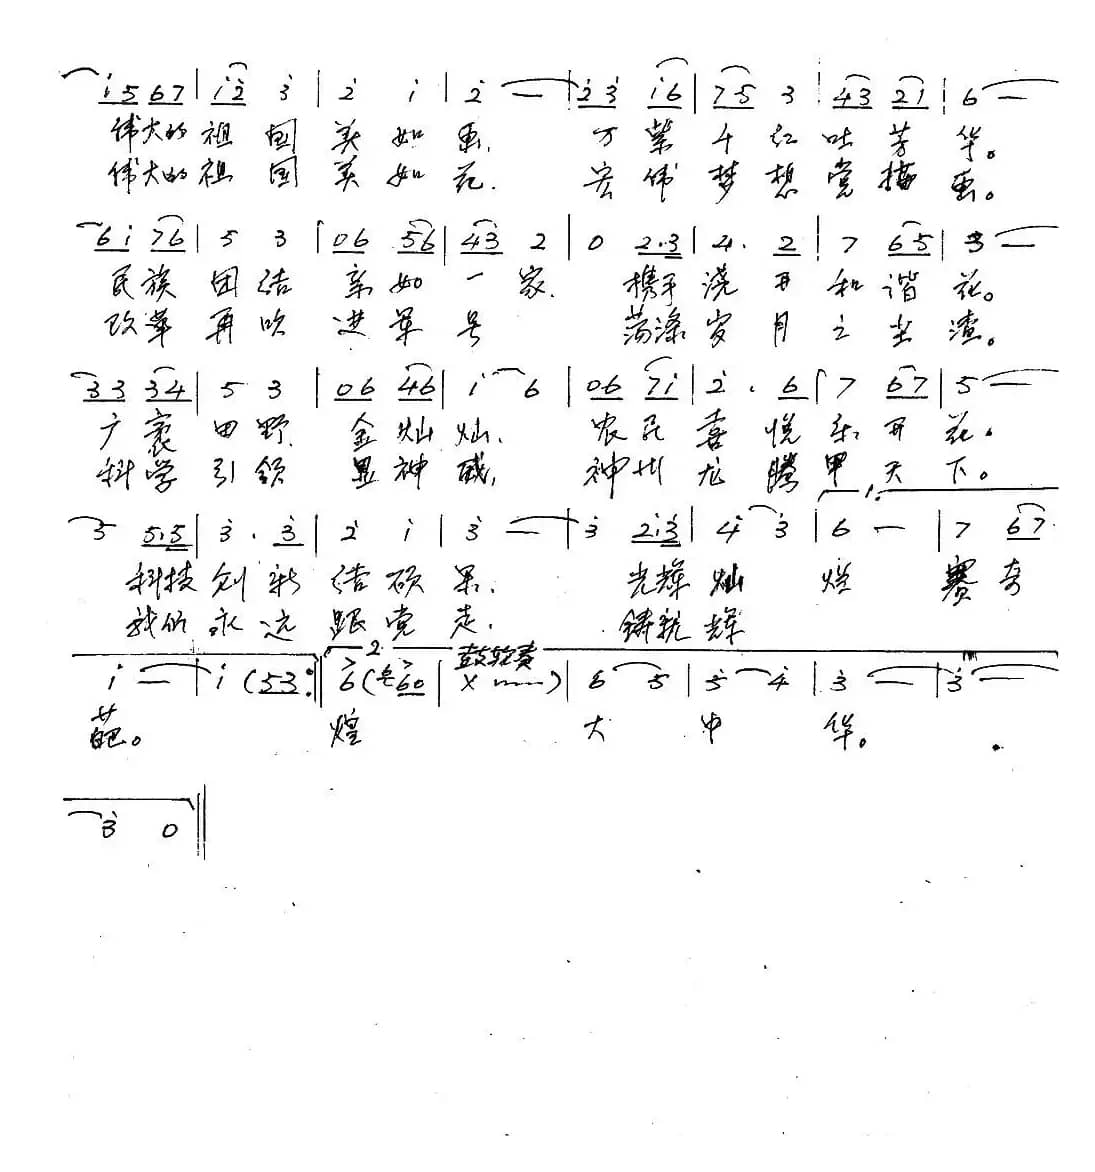 i 5 6 7 | i 2 3 | 2 i | 2 — | 2 3 i 6 | 7 5 3 | 4 3 2 1 | 6 —
伟大的祖国美如画, 万紫千红吐芳华。
伟大的祖国美如花. 宏伟梦想党描画。
6 i 7 6 | 5 3 | 0 6 5 6 | 4 3 2 | 0 2. 3 | 2. 2 | 7 6 5 | 3 —
民族团结亲如一家. 携手浇开和谐花。
改革再吹进军号 荡涤岁月之尘渣。
3 3 3 4 | 5 3 | 0 6 4 6 | i 6 | 0 6 7 i | 2. 6 | 7 6 7 | 5 —
广袤田野 金灿灿. 农民喜悦乐开花。
科学引领显神威, 神州龙腾甲天下。
5 5. 5 | 3. 3 | 2 i | 3 — | 3 2. 3 | 4 3 | 1. 6 — | 7 6 7
科技创新结硕果. 光辉灿烂 赛奇
我们永远跟党走. 铸就辉
i — | i ( 5 3 :| 2. 6 ( 6 0 | 鼓轮奏 X ) | 6 5 | 5 4 | 3 — | 3 —
葩。 煌 大中华。
3 0 ||